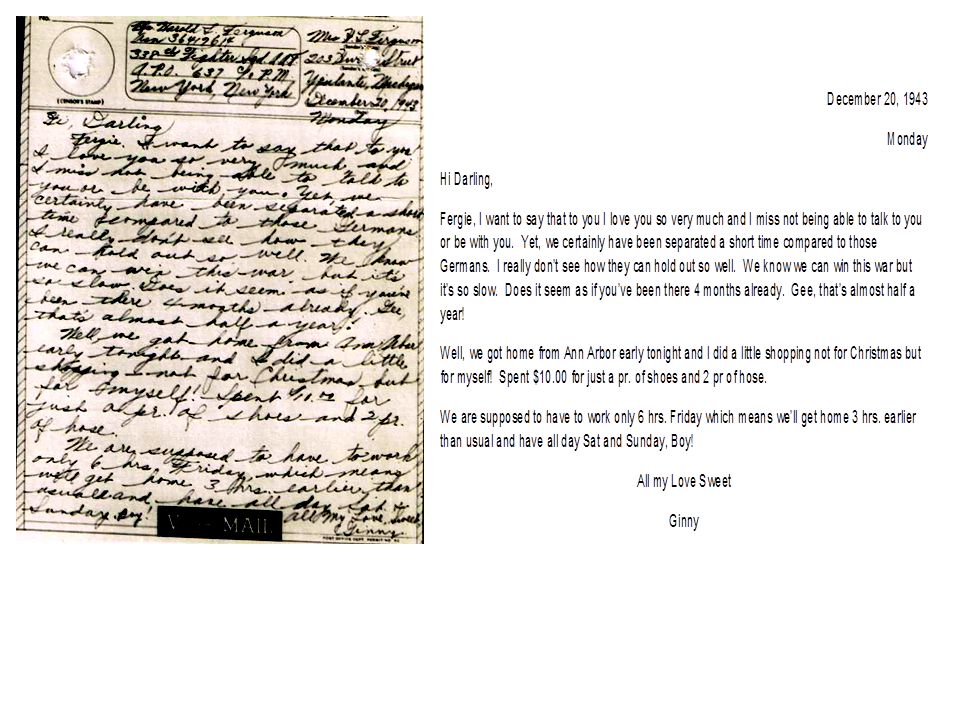 No.
(CENSOR'S STAMP)
Harold L. Ferguson
338th Fighter Sqd.
A.P.O. 637 % P.M.
New York, New York
Mrs. H. L. Ferguson
203 Street
Ypsilanti, Michigan
December 20, 1943
Monday
Hi, Darling
Fergie, I want to say that to you
I love you so very much and
I miss not being able to talk to
you or be with you. Yet, we
certainly have been separated a short
time compared to those Germans
I really don't see how they
can hold out so well. We know
we can win this war but it's
so slow. Does it seem as if you've
been there 4 months already. Gee,
that's almost half a year!
Well we got home from Ann Arbor
early tonight and I did a little
shopping not for Christmas but
for myself! Spent for
just a pr. of shoes and 2 pr.
of hose.
We are supposed to have to work
only 6 hrs. Friday, which means
we'll get home 3 hrs. earlier than
usual and have all day Sat +
Sunday. Boy! All my Love Sweet
Ginny
V MAIL
POST OFFICE DEPT. PERMIT NO.
December 20, 1943
Monday
Hi Darling,
Fergie, I want to say that to you I love you so very much and I miss not being able to talk to you
or be with you. Yet, we certainly have been separated a short time compared to those
Germans. I really don't see how they can hold out so well. We know we can win this war but
it's so slow. Does it seem as if you've been there 4 months already. Gee, that's almost half a
year!
Well, we got home from Ann Arbor early tonight and I did a little shopping not for Christmas but
for myself! Spent $10.00 for just a pr. of shoes and 2 pr of hose.
We are supposed to have to work only 6 hrs. Friday which means we'll get home 3 hrs. earlier
than usual and have all day Sat and Sunday, Boy!
All my Love Sweet
Ginny